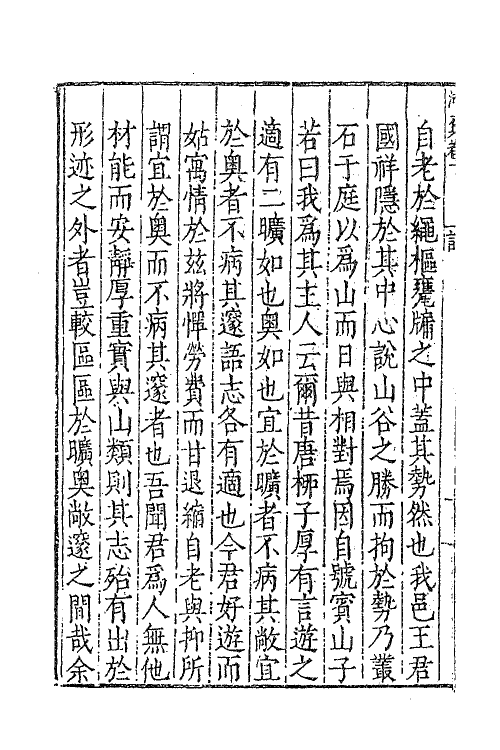 自老於繩樞甕牖之中蓋其勢然也我邑王君
國祥隱於其中心說山谷之勝而拘於勢乃叢
石于庭以爲山而日與相對焉因自號賓山子
若曰我爲其主人云爾昔唐柳子厚有言遊之
適有二曠如也奧如也宜於曠者不病其敞宜
於奧者不病其邃語志各有適也今君好遊而
姑寓情於玆將憚勞費而甘退縮自老與抑所
謂宜於奧而不病其邃者也吾聞君爲人無他
材能而安靜厚重實與山類則其志殆有出於
形迹之外者豈較區區於曠奧敞邃之間哉余